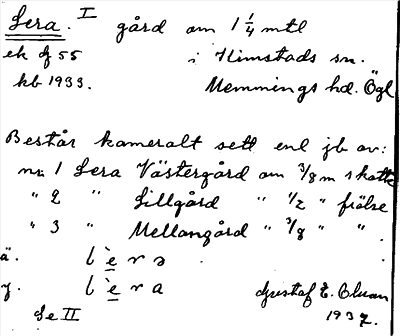 Lera. I gård om 1 1/4 mtl
ek bf 55 i Kimstads sn.
kb 1933. Memmings hd. Ögl
Består kameralt sett enl jb av:
nr. 1 Lera Västergård om 3/8 m skatte
" 2 " Lillgård " 1/2 " frälse
" 3 " Mellangård " 3/8 " " .
ä. lèrə
y. lèra
Se II Gustaf E. Cluan
1937.